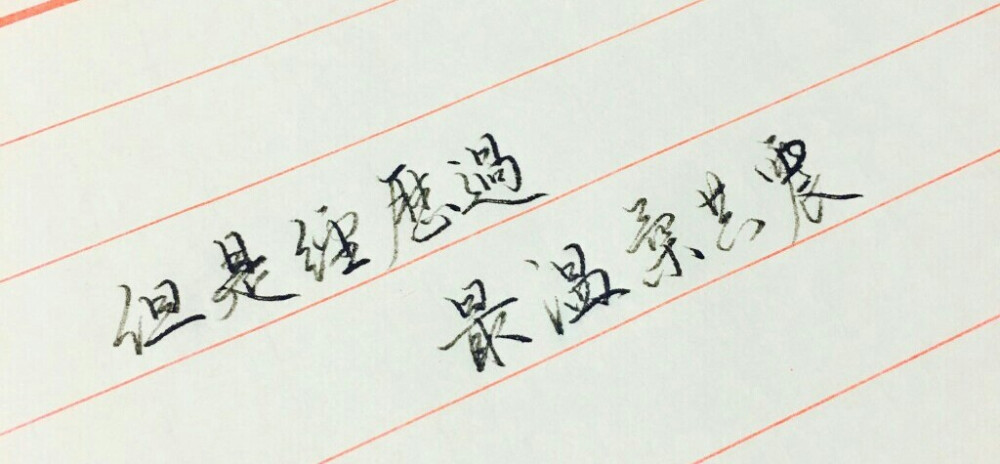 但是經歷過
最溫柔共震